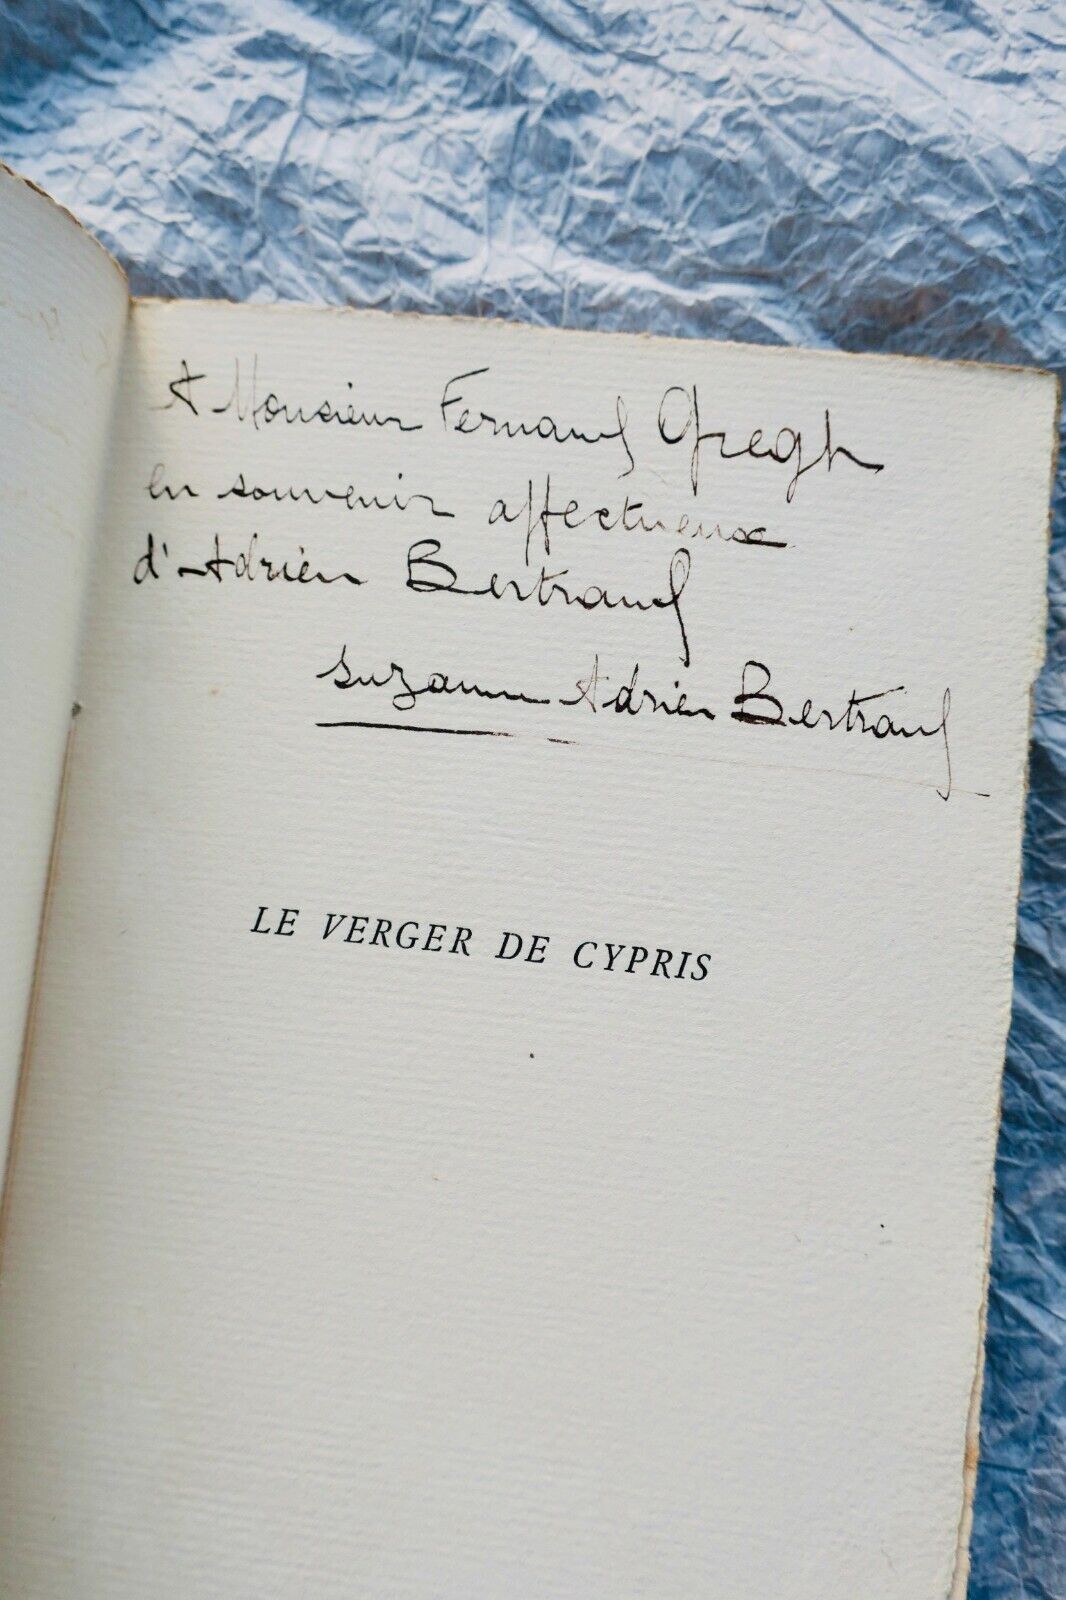 A Monsieur Fernand Gregh
en souvenir affectueux
d'Adrien Bertrand
Suzanne Adrien Bertrand
LE VERGER DE CYPRIS